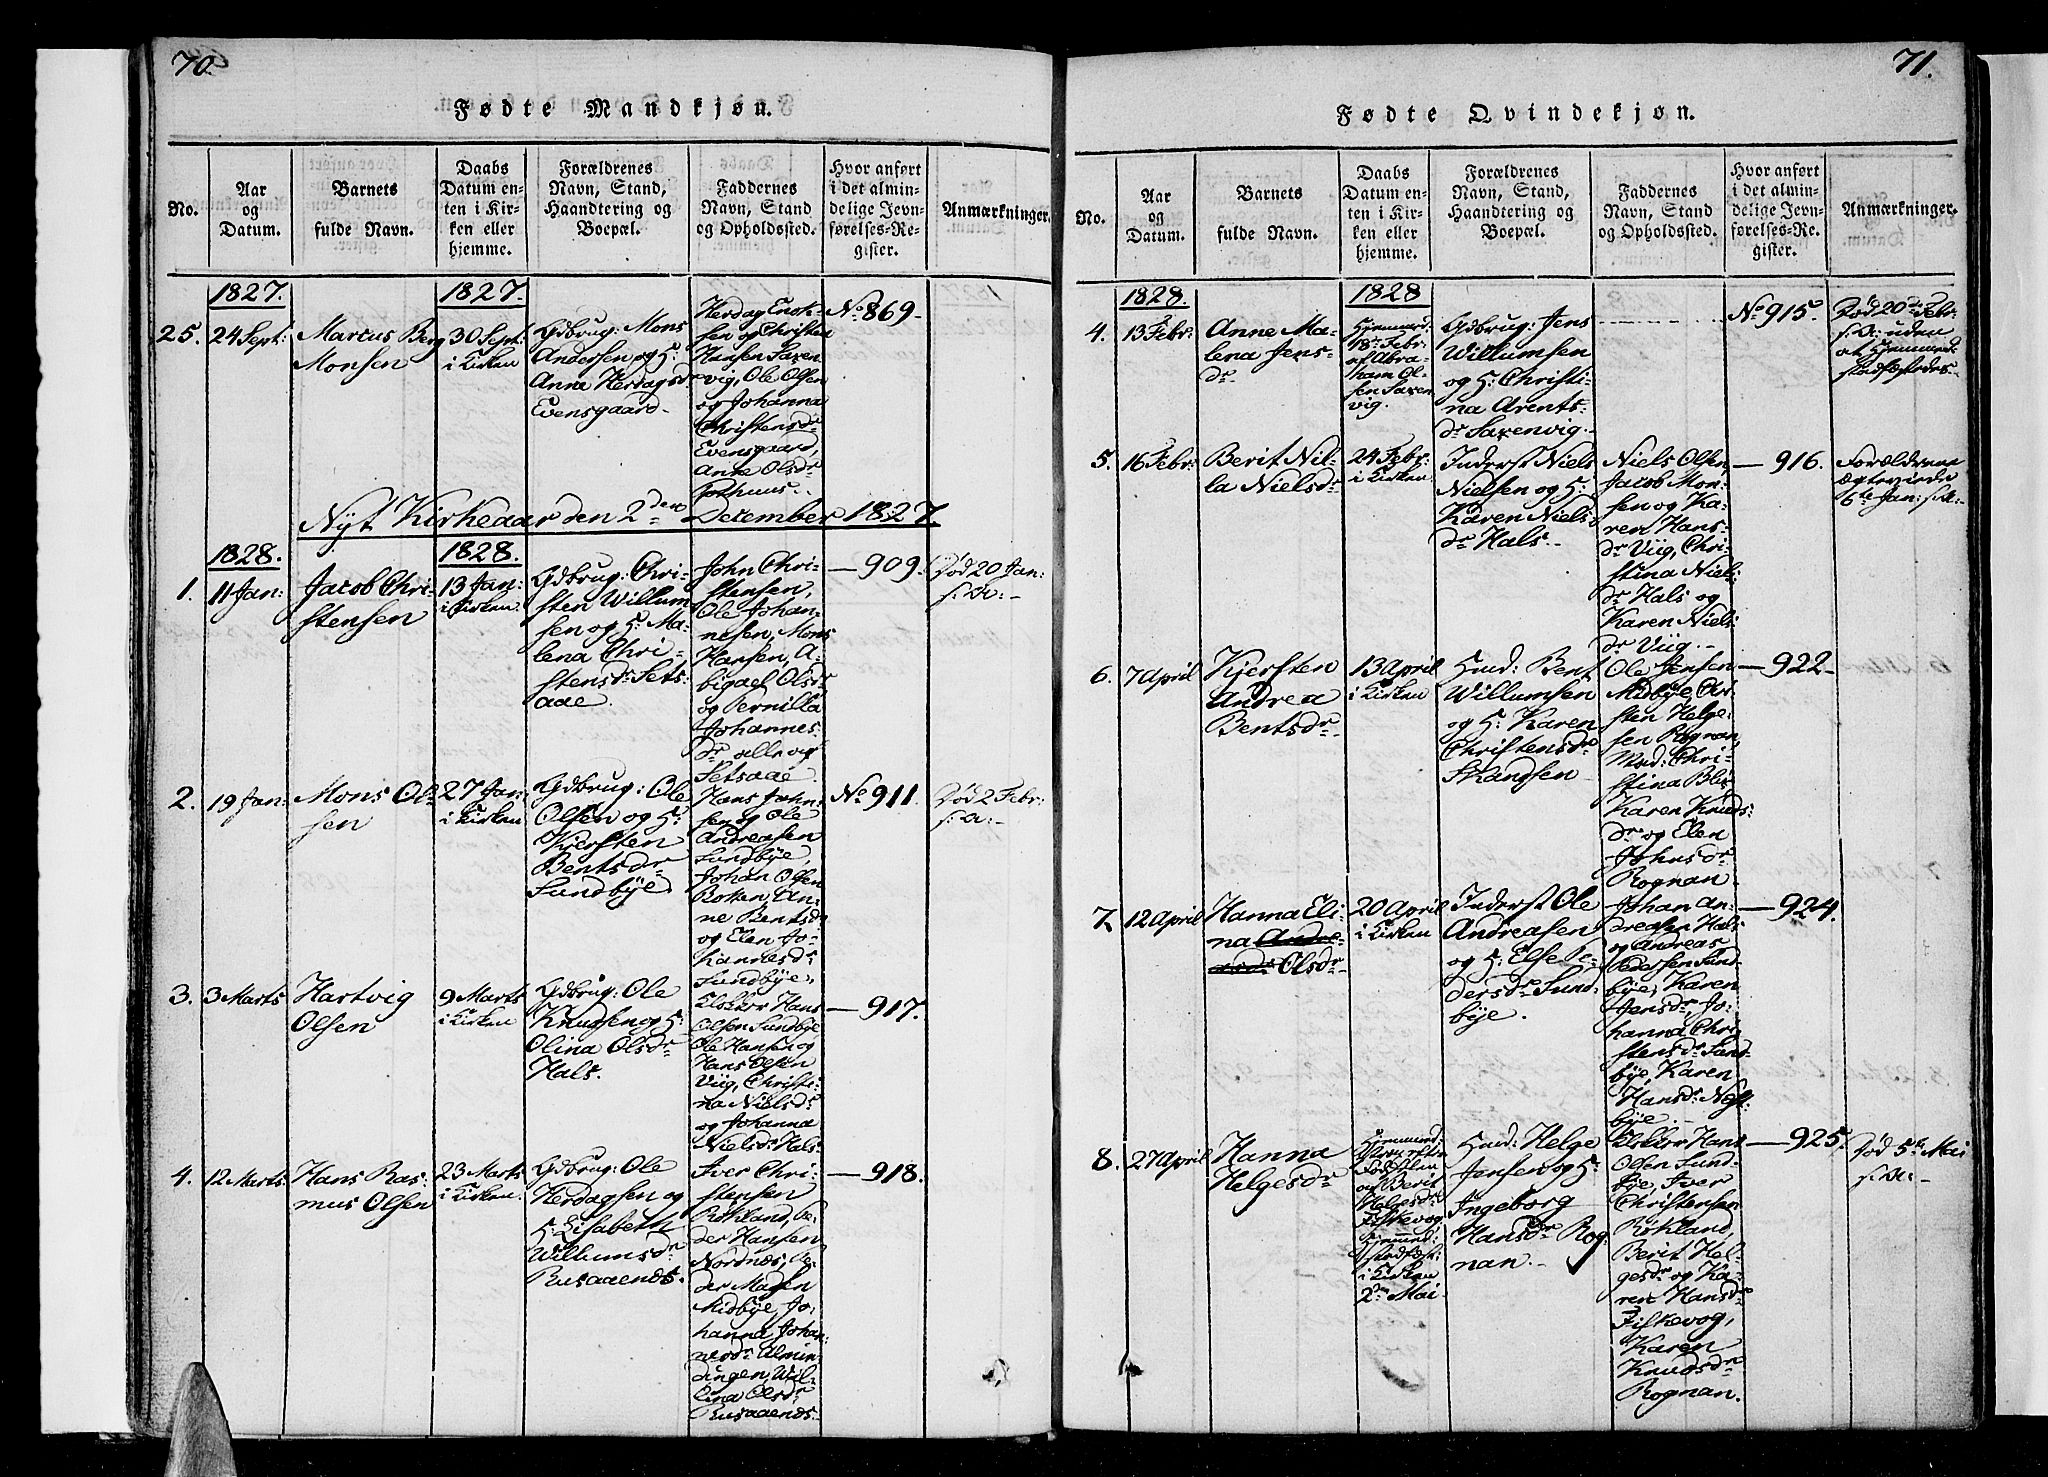 70.
Fødte Mandkjøn.
No.
Aar
og
Datum.
Barnets
fulde Navn.
Daabs
Datum en-
ten i Kir-
ken eller
hjemme.
Forældrenes
Navn, Stand,
Haandtering og
Boepæl.
Faddernes
Navn, Stand
og Opholdssted.
Hvor anført
i det almin-
delige Jevn-
førelses-Re-
gister.
Anmærkninger.
1827.
1827.
25.
24 Sept:
Marcus Berg
Monsen
30 Sept:
i Kirken
Gdbrug: Mons
Andersen og H:
Anne Herdagsdr
Evensgaard.
Herdag Enok-
sen og Christen
Hansen Saxen-
vig, Ole Olsen
og Johanna
Christensdr
Evensgaard,
Anne Olsdr
Pothuus.
No 869.
Nyt Kirkeaar den 2den December 1827.
1828.
1828.
1.
11 Jan:
Jacob Chri-
stensen
13 Jan:
i Kirken
Gdbrug: Chri-
sten Willum-
sen og H: Ma-
lena Chri-
stensdr Sets-
aae.
John Chri-
stensen,
Ole Johan-
nesen, Mons
Hansen, A-
bigael Olsdr
og Pernilla
Johannes-
dr alle og
Setsaae.
909.
Død 20 Jan:
s: A:
2.
19 Jan:
Mons Ol-
sen
27 Jan:
i Kirken
Gdbrug: Ole
Olsen og H:
Kjersten
Bentsdr
Sundbye
Hans John-
sen og Ole
Andreasen
Sundbye,
Johan Olsen
Botten, An-
ne Bentsdr
og Elen Jo-
hannesdr
Sundbye.
No 911.
Død 2 Febr:
s: A:
3.
3 Marts
Hartvig
Olsen
9 Marts
i Kirken
Gdbrug: Ole
Knudsen og H:
Olina Olsdr
Hals.
Klokker Hans
Olsen Sundbye
Ole Hansen og
Hans Olsen
Viig, Christi-
na Nielsdr
og Johanna
Nielsdr Hals.
917.
4.
12 Marts
Hans Ras-
mus Olsen
23 Marts
i Kirken
Gdbrug: Ole
Herdagsen og
H: Lisabeth
Willumsdr
Rusaaenes.
Iver Chri-
stensen
Rökland, Pe-
der Hansen
Nordnæs, Pe-
der Madsen
Midbye, Jo-
hanna Johan-
nesdr Almin-
dingen, Wil-
lina Olsdr
Rusaaenes.
918.
71.
Fødte Qvindekjøn.
No.
Aar
og
Datum.
Barnets
fulde Navn.
Daabs
Datum en-
ten i Kir-
ken eller
hjemme.
Forældrenes
Navn, Stand,
Haandtering og
Boepæl.
Faddernes
Navn, Stand
og Opholdssted.
Hvor anført
i det almin-
delige Jevn-
førelses-Re-
gister.
Anmærkninger.
1828.
1828
4.
13 Febr:
Anne Ma-
lena Jens-
dr
Hjemmed:
18 Febr:
af Abra-
ham Ol-
sen Saxen-
vig.
Gdbrug: Jens
Willumsen
og H: Christi-
na Arents-
dr Saxenvig.
No 915.
Død 20de Febr:
s: A: uden
at Hjemmed:
stadfæstedes.
5.
16 Febr:
Berit Nil-
la Nielsdr
24 Febr:
i Kirken
Inderst Niels
Nielsen og H:
Karen Niels-
dr Hals.
Niels Olsen,
Jacob Mon-
sen og Ka-
ren Hans-
dr Viig, Chri-
stina Niels-
dr Hals og
Karen Niels-
dr Viig.
916.
Forældrene
ægteviede
6te Jan: s: A:
6.
7 April
Kjersten
Andrea
Bentsdr
13 April
i Kirken
Huusmd: Bent
Willumsen
og H: Karen
Christensdr
Skandsen
Ole Jensen
Midbye, Chri-
sten Helge-
sen Rognan,
Mad: Chri-
stina Blix
Karen Knuds-
dr og Elen
Johnsdr
Rognan
922
7.
12 April
Hanna Eli-
na Andre-
asdr Olsdr
20 April
i Kirken
Inderst Ole
Andreasen
og H: Else Pe-
dersdr Sund-
bye.
Johan An-
dreasen Hals
og Andreas
Pedersen Sund-
bye, Karen
Jensdr, Jo-
hanna Chri-
stensdr Sund-
bye, Karen
Hansdr Nest-
bye.
924.
8.
27 April
Hanna
Helgesdr
og Berit
Helgesdr
Fiskevog
Hjemmed:
stadfæst:
i Kirken
2den Mai
Huusmd: Helge
Jensen og H:
Ingeborg
Hansdr Rog-
nan.
Klokker Hans
Olsen Sund-
bye, Iver
Christensen
Rökland,
Berit Hel-
gesdr og Ka-
ren Hansdr
Fiskevog,
Karen
Knudsdr
Rognan.
925.
Død 5te Mai
s: A: